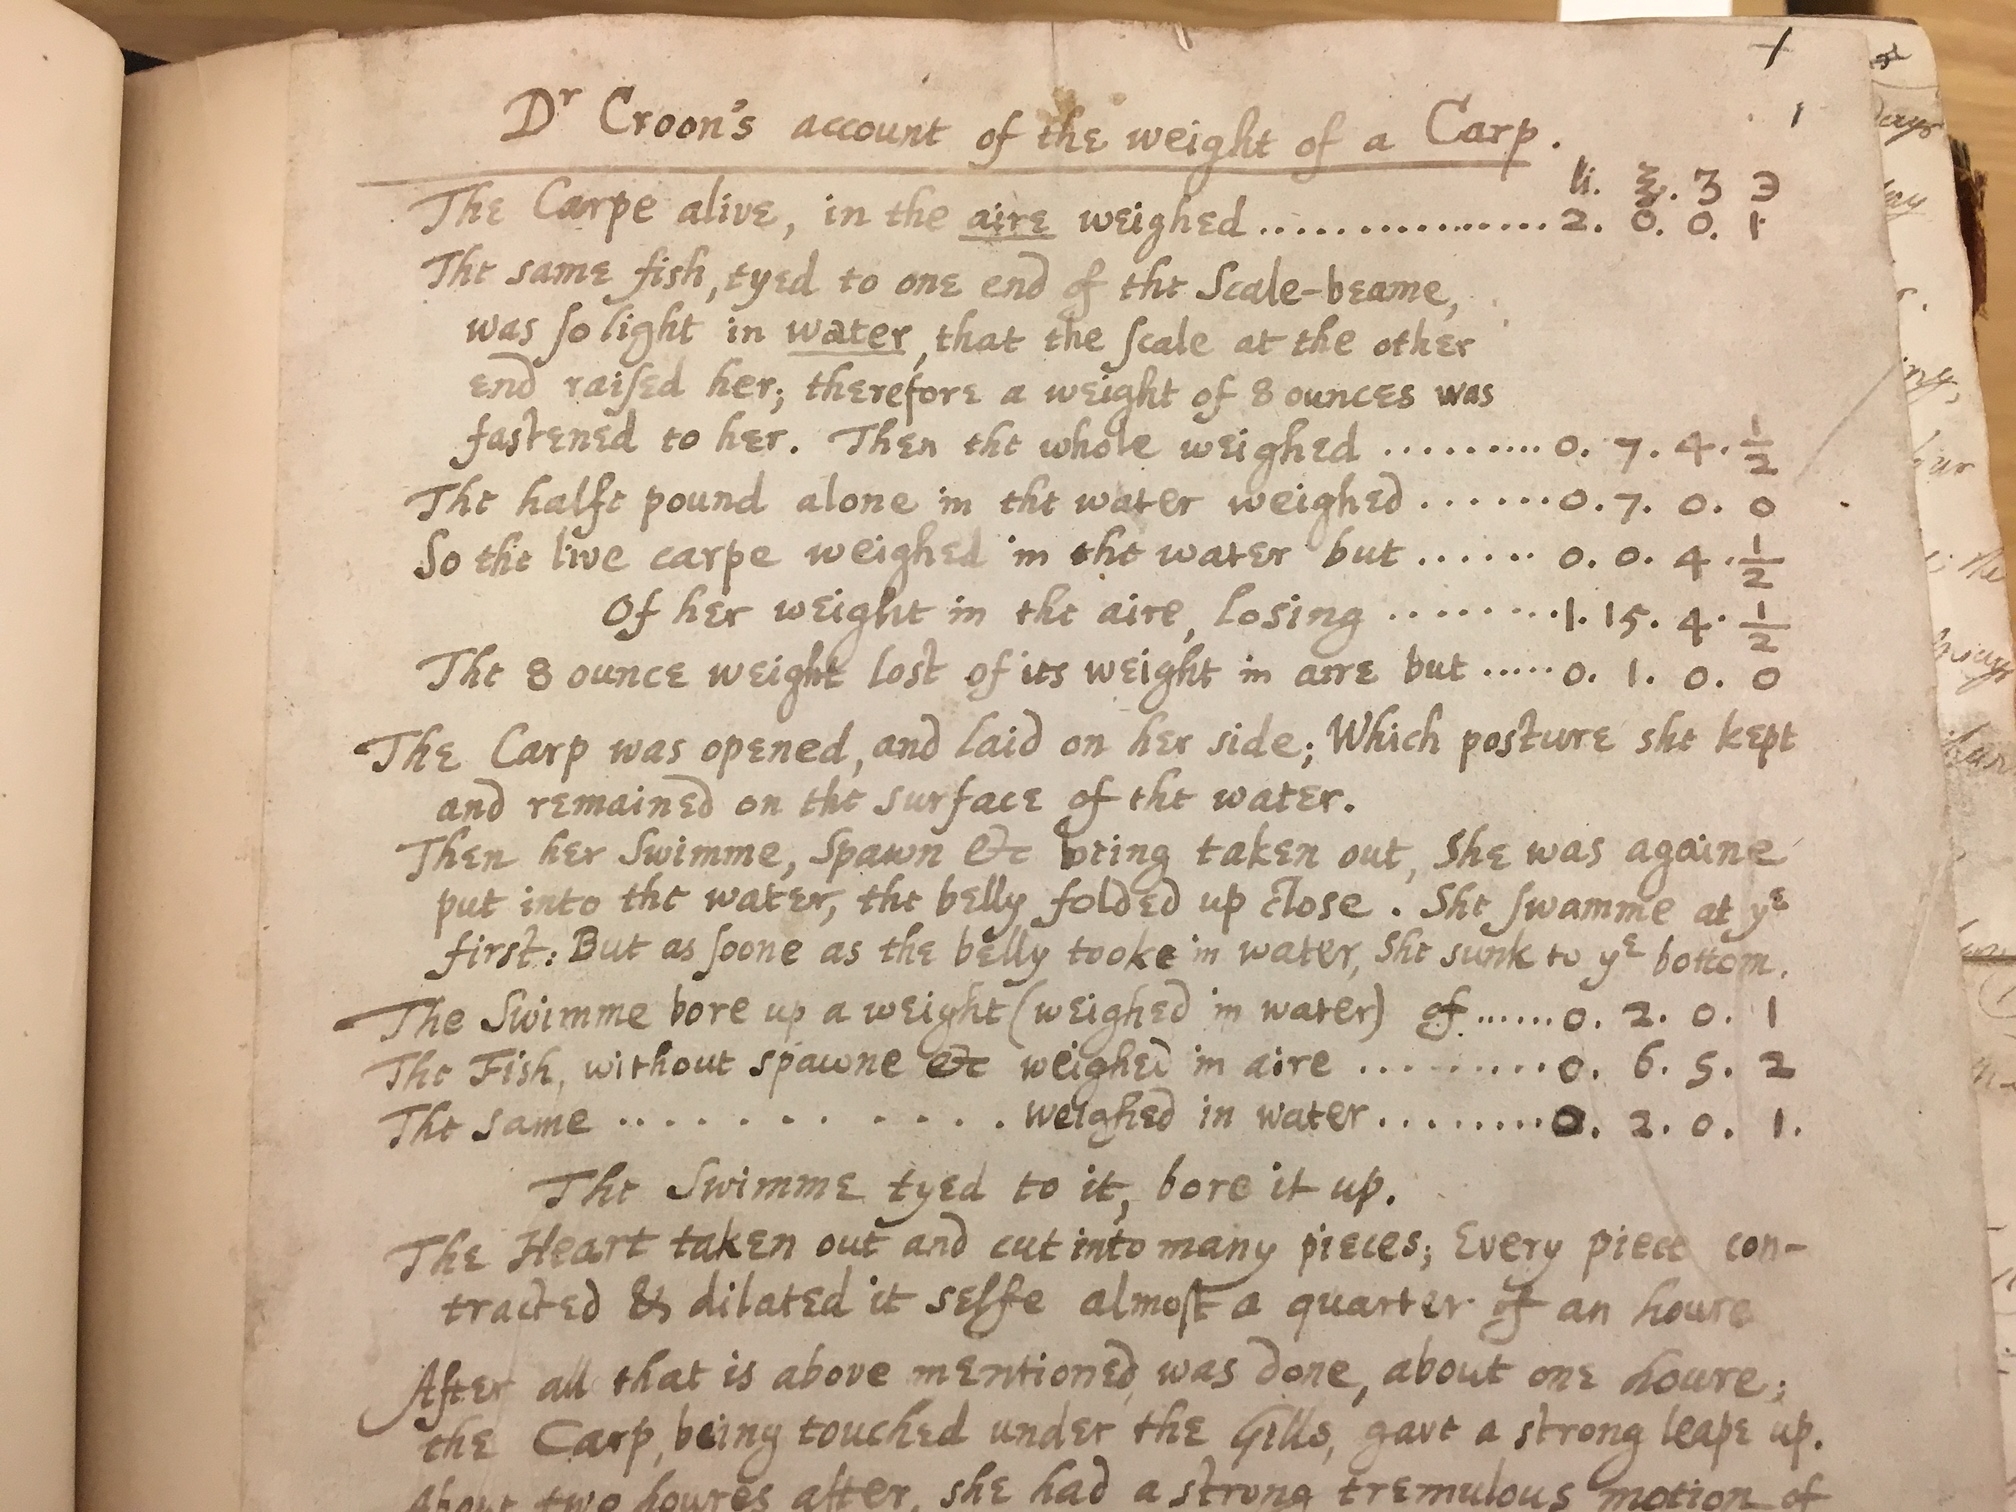 Dr Croon's account of the weight of a Carp.
1
li. ℥. ʒ ℈
The Carpe alive, in the aire weighed ................. 2. 0. 0. 1
The same fish, tyed to one end of the Scale-beame,
was so light in water, that the scale at the other
end raised her; therefore a weight of 8 ounces was
fastened to her. Then the whole weighed .......... 0. 7. 4. 1/2
The halfe pound alone in the water weighed ....... 0. 7. 0. 0
So the live carpe weighed in the water but ...... 0. 0. 4. 1/2
Of her weight in the aire, losing ......... 1. 15. 4. 1/2
The 8 ounce weight lost of its weight in aire but ..... 0. 1. 0. 0
The Carp was opened, and laid on her side; Which posture she kept
and remained on the surface of the water.
Then her Swimme, Spawn &c being taken out, She was againe
put into the water, the belly folded up close. She swamme at ye
first: But as soone as the belly tooke in water, She sunk to ye bottom.
The Swimme bore up a weight (weighed in water) of ...... 0. 2. 0. 1
The Fish, without spawne &c weighed in aire .......... 0. 6. 5. 2
The same ............ weighed in water ......... 0. 2. 0. 1.
The Swimme tyed to it, bore it up.
The Heart taken out and cut into many pieces; Every piece con-
tracted & dilated it selfe almost a quarter of an houre
After all that is above mentioned was done, about one houre;
the Carp, being touched under the Gills, gave a strong leape up.
About two houres after, she had a strong tremulous motion of